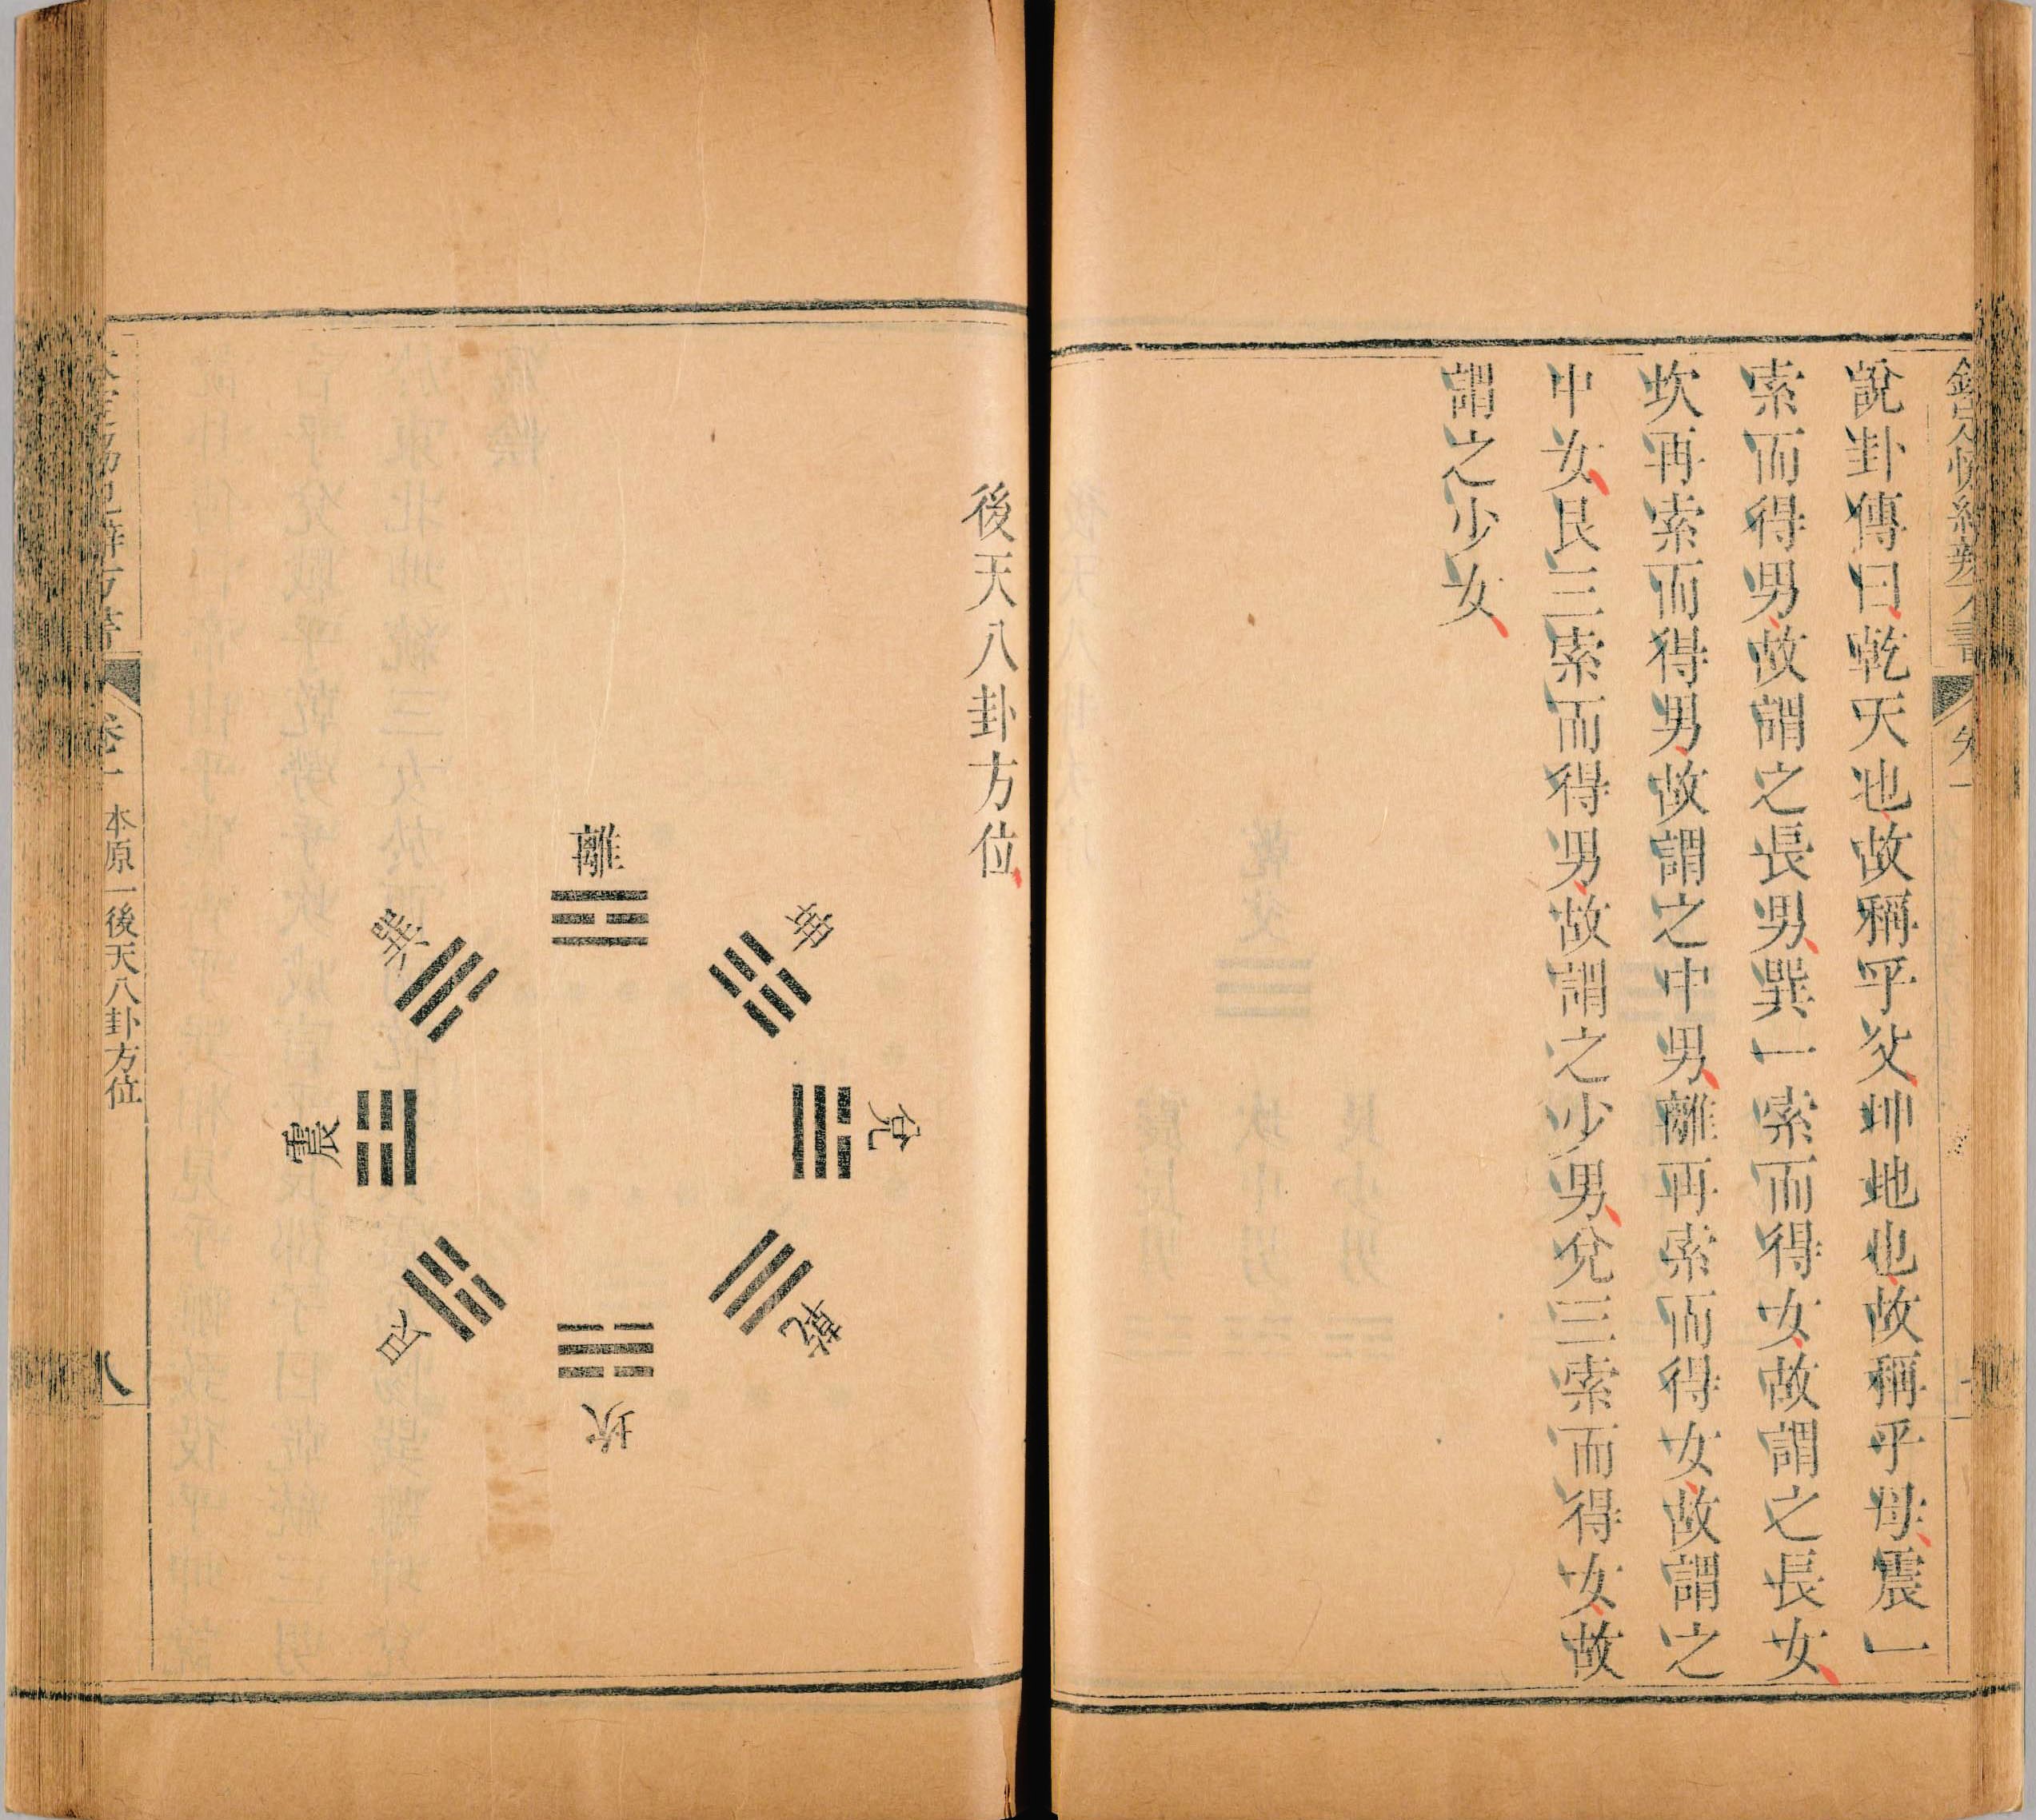 說卦傳曰乾天也故稱乎父坤地也故稱乎母震一
索而得男故謂之長男巽一索而得女故謂之長女
坎再索而得男故謂之中男離再索而得女故謂之
中女艮三索而得男故謂之少男兌三索而得女故
謂之少女
後天八卦方位
離
坤
兌
乾
坎
艮
震
巽
卷一 本原一後天八卦方位
八